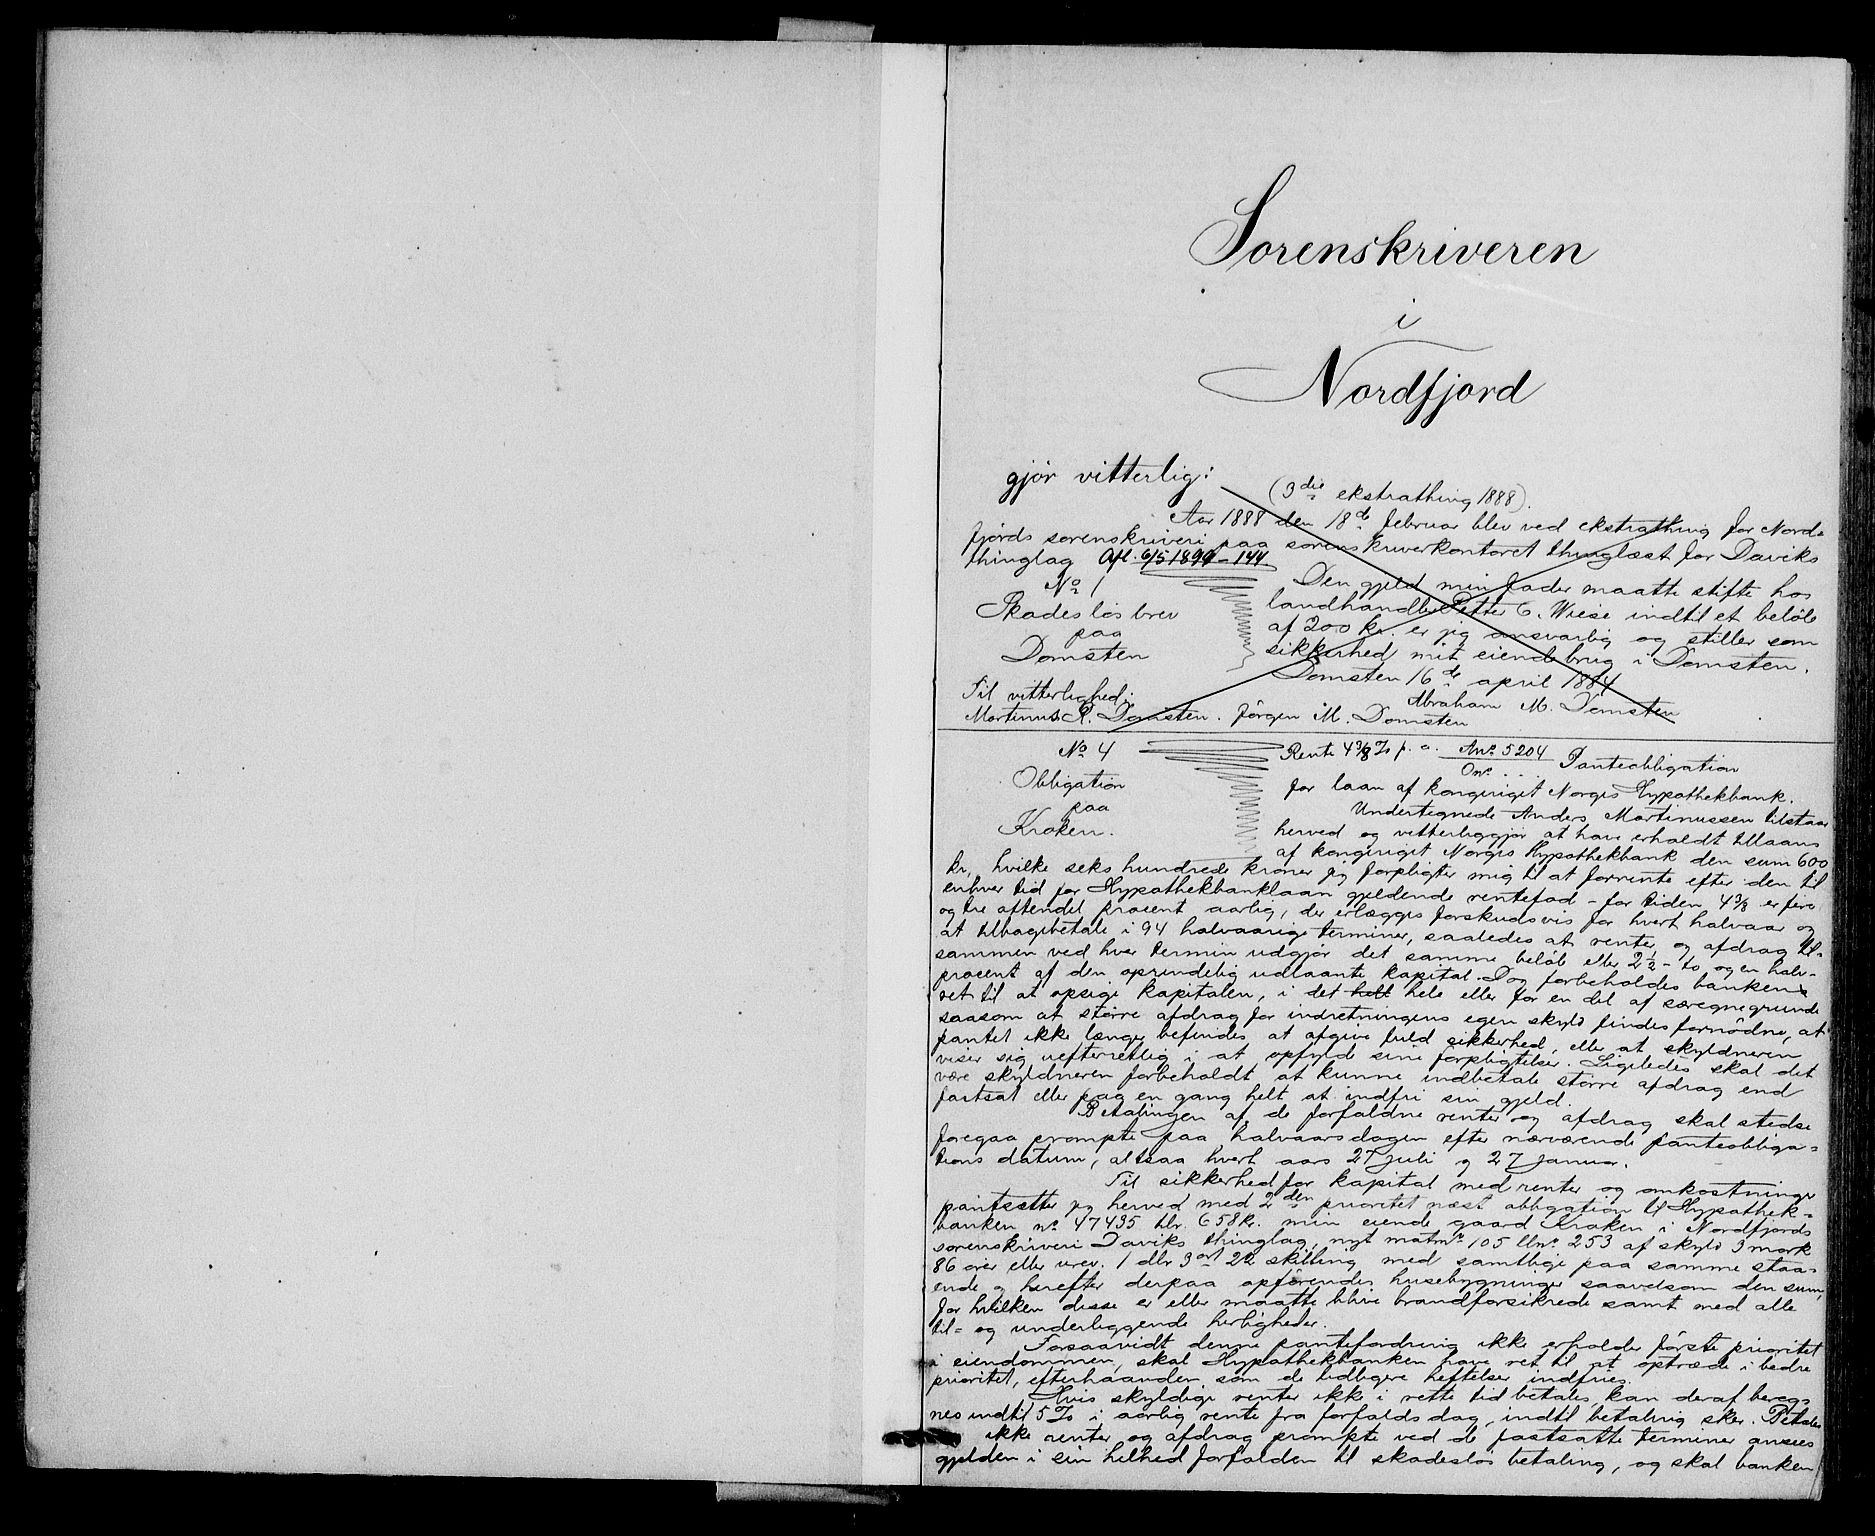 Sorenskriveren
i
Nordfjord
gjør vitterlig:
(3die ekstrathing 1888).
Aar 1888 den 18de februar blev ved ekstrathing for Nord=
fjords sorenskriveri paa sorenskriverkontoret thinglæst for Daviks
thinglag Afl. 6/5 1890-144.
No 1
Skadesløsbrev
paa
Domsten
Den gjeld min fader maatte stifte hos
landhandler Peter C. Wiese indtil et beløb
af 200 kr. er jeg ansvarlig og stiller som
sikkerhed mit eiende brug i Domsten.
Domsten 16de april 1884
Abraham M. Domsten
Til vitterlighed:
Martinus R. Domsten. Jørgen M. Domsten
No 4
Obligation
paa
Kroken.
Rente 4 3/8 % p. a. Ano 5204 Panteobligation
Ono ...
for laan af kongeriget Norges Hypothekbank.
Undertegnede Anders Martinussen tilstaar
herved og vitterliggjør at have erholdt tillaans
af kongeriget Norges Hypothekbank den sum 600
kr, hvilke seks hundrede kroner jeg forpligter mig til at forrente efter den til
enhver tid for Hypothekbanklaan gjeldende rentefod - for tiden 4 3/8 er fire
og tre ottendel procent aarlig, der erlægges forskudsvis for hvert halvaar og
at tilbagebetale i 94 halvaarige terminer, saaledes at renter og afdrag til=
sammen ved hver termin udgjør det samme beløb eller 2 1/2 - to og en halv-
procent af den oprindelig udlaante kapital. Dog forbeholdes banken
ret til at opsige kapitalen, i det helt hele eller for en del af særegne grunde
saasom at større afdrag for indretningens egen skyld findes fornødne, at
pantet ikke længer befindes at afgive fuld sikkerhed, eller at skyldneren
viser sig uefterretlig i at opfylde sine forpligtelser. Ligeledes skal det
være skyldneren forbeholdt at kunne indbetale større afdrag end
fastsat eller paa en gang helt at indfri sin gjeld.
Betalingen af de forfaldne renter og afdrag skal stedse
foregaa prompte paa halvaarsdagen efter nærværende panteobliga=
tions datum, altsaa hvert aars 27 juli og 27 januar.
Til sikkerhed for kapital med renter og omkostninger
pantsætter jeg herved med 2den prioritet næst obligation til Hypothek=
banken no 47435 blr. 658 kr. min eiende gaard Kroken i Nordfjords
sorenskriveri Daviks thinglag, nyt matrno 105 lno 253 af skyld 3 mark
86 ører eller urev. 1 dlr 3 ort 22 skilling med samtlige paa samme staa=
ende og herefter derpaa opførendes husebygninger saavelsom den sum,
for hvilken disse er eller maatte blive brandforsikrede samt med alle
til= og underliggende herligheder.
Forsaavidt denne pantefordring ikke erholder første prioritet
i eiendommen, skal Hypothekbanken have ret til at optræde i bedre
prioritet, efterhaanden som de tidligere heftelser indfries.
Hvis skyldige renter ikke i rette tid betales, kan deraf bereg=
nes indtil 5 % i aarlig rente fra forfaldsdag, indtil betaling sker. Betales
ikke renter og afdrag prompte ved de fastsatte terminer ansees
gjelden i sin helhed forfalden til skadesløs betaling, og skal banken